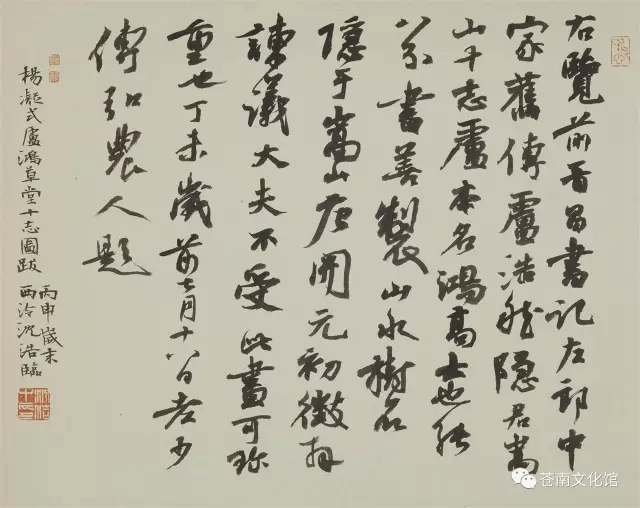 右覽前晉昌書記左郎中
家舊傳盧浩然隱君嵩
山十志盧本名鴻高士也能
八分書善製山水樹石
隱于嵩山唐開元初徵拜
諫議大夫不受此畫可珍
重也丁未歲前七月十八日老少
傅弘農人題
楊凝式盧鴻草堂十志圖跋
丙申歲末
西泠沈浩臨
苍南文化馆